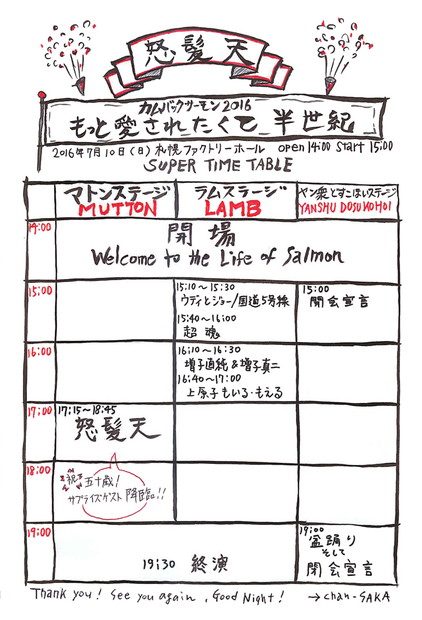 怒髪天
カムバックサーモン2016
もっと愛されたくて半世紀
2016年7月10日(日)札幌ファクトリーホール open 14:00 start 15:00
SUPER TIME TABLE
マトンステージ
MUTTON
ラムステージ
LAMB
ヤン衆どすこほいステージ
YANSHU DOSUKOHOI
14:00
開場
Welcome to the Life of Salmon
15:00
15:10~15:30
ウディとジョー/国道5号線
15:40~16:00
超魂
15:00
開会宣言
16:00
16:10~16:30
増子直純&増子真二
16:40~17:00
上原子もいる・もえる
17:00
17:15~18:45
怒髪天
18:00
祝 五十歳!
サプライズゲスト降臨!!
19:00
19:30 終演
19:00
盆踊り
そして
閉会宣言
Thank you! See you again, Good Night! →chan-SAKA